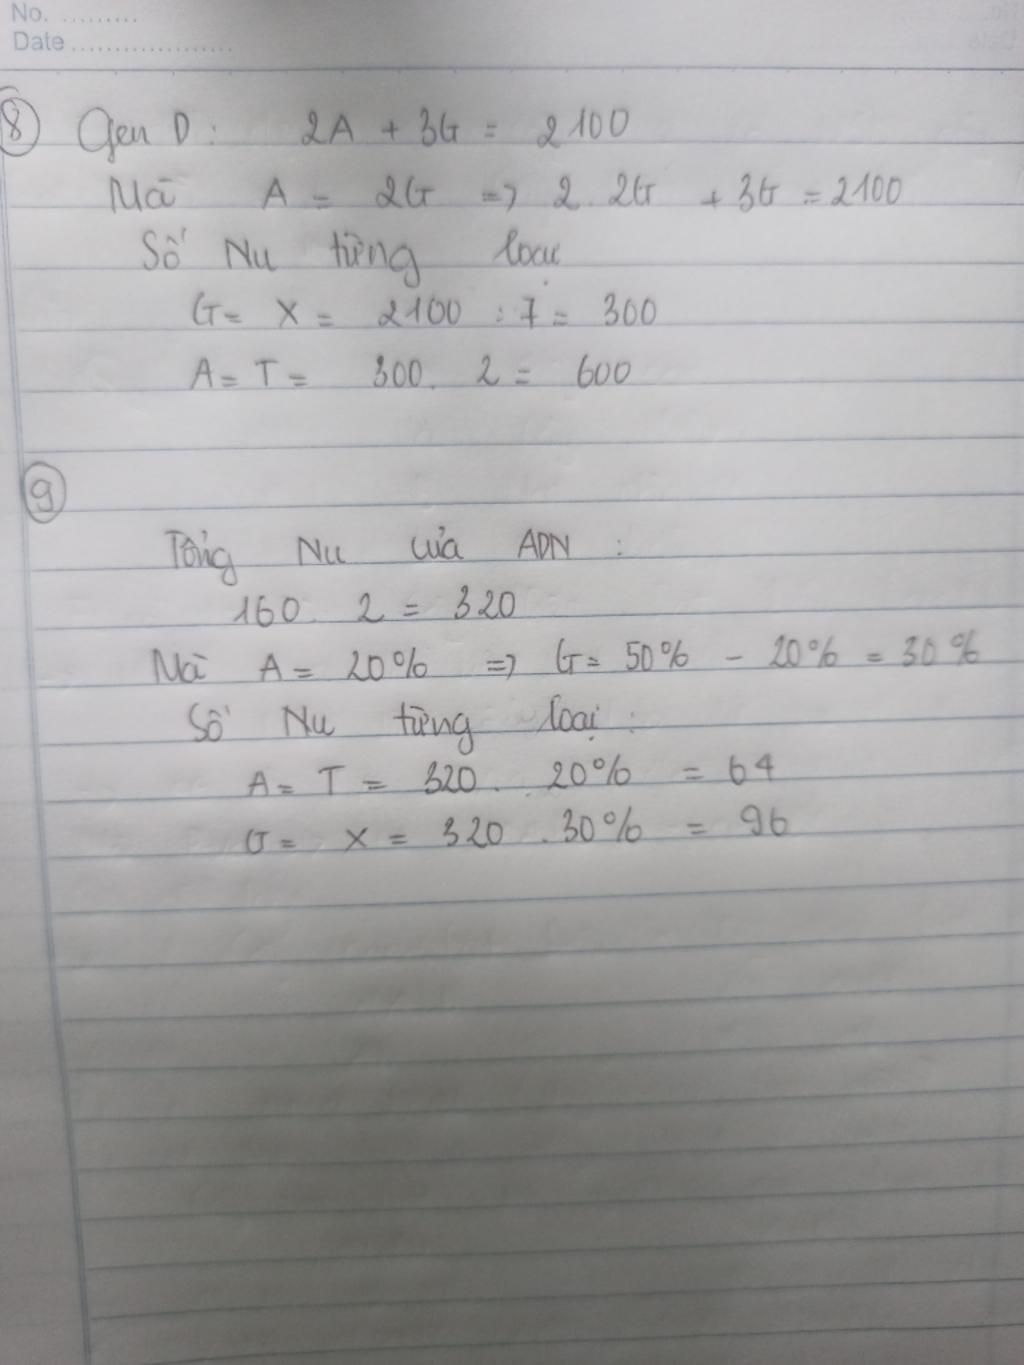 No. .........
Date ...................
8 Gen D: 2A + 3G = 2100
Mà A = 2G => 2. 2G + 3G = 2100
Số Nu từng loại
G = X = 2100 : 7 = 300
A = T = 300. 2 = 600
9
Tổng Nu của ADN :
160. 2 = 320
Mà A = 20% => G = 50% - 20% = 30%
Số Nu từng loại :
A = T = 320. 20% = 64
G = X = 320 .30% = 96